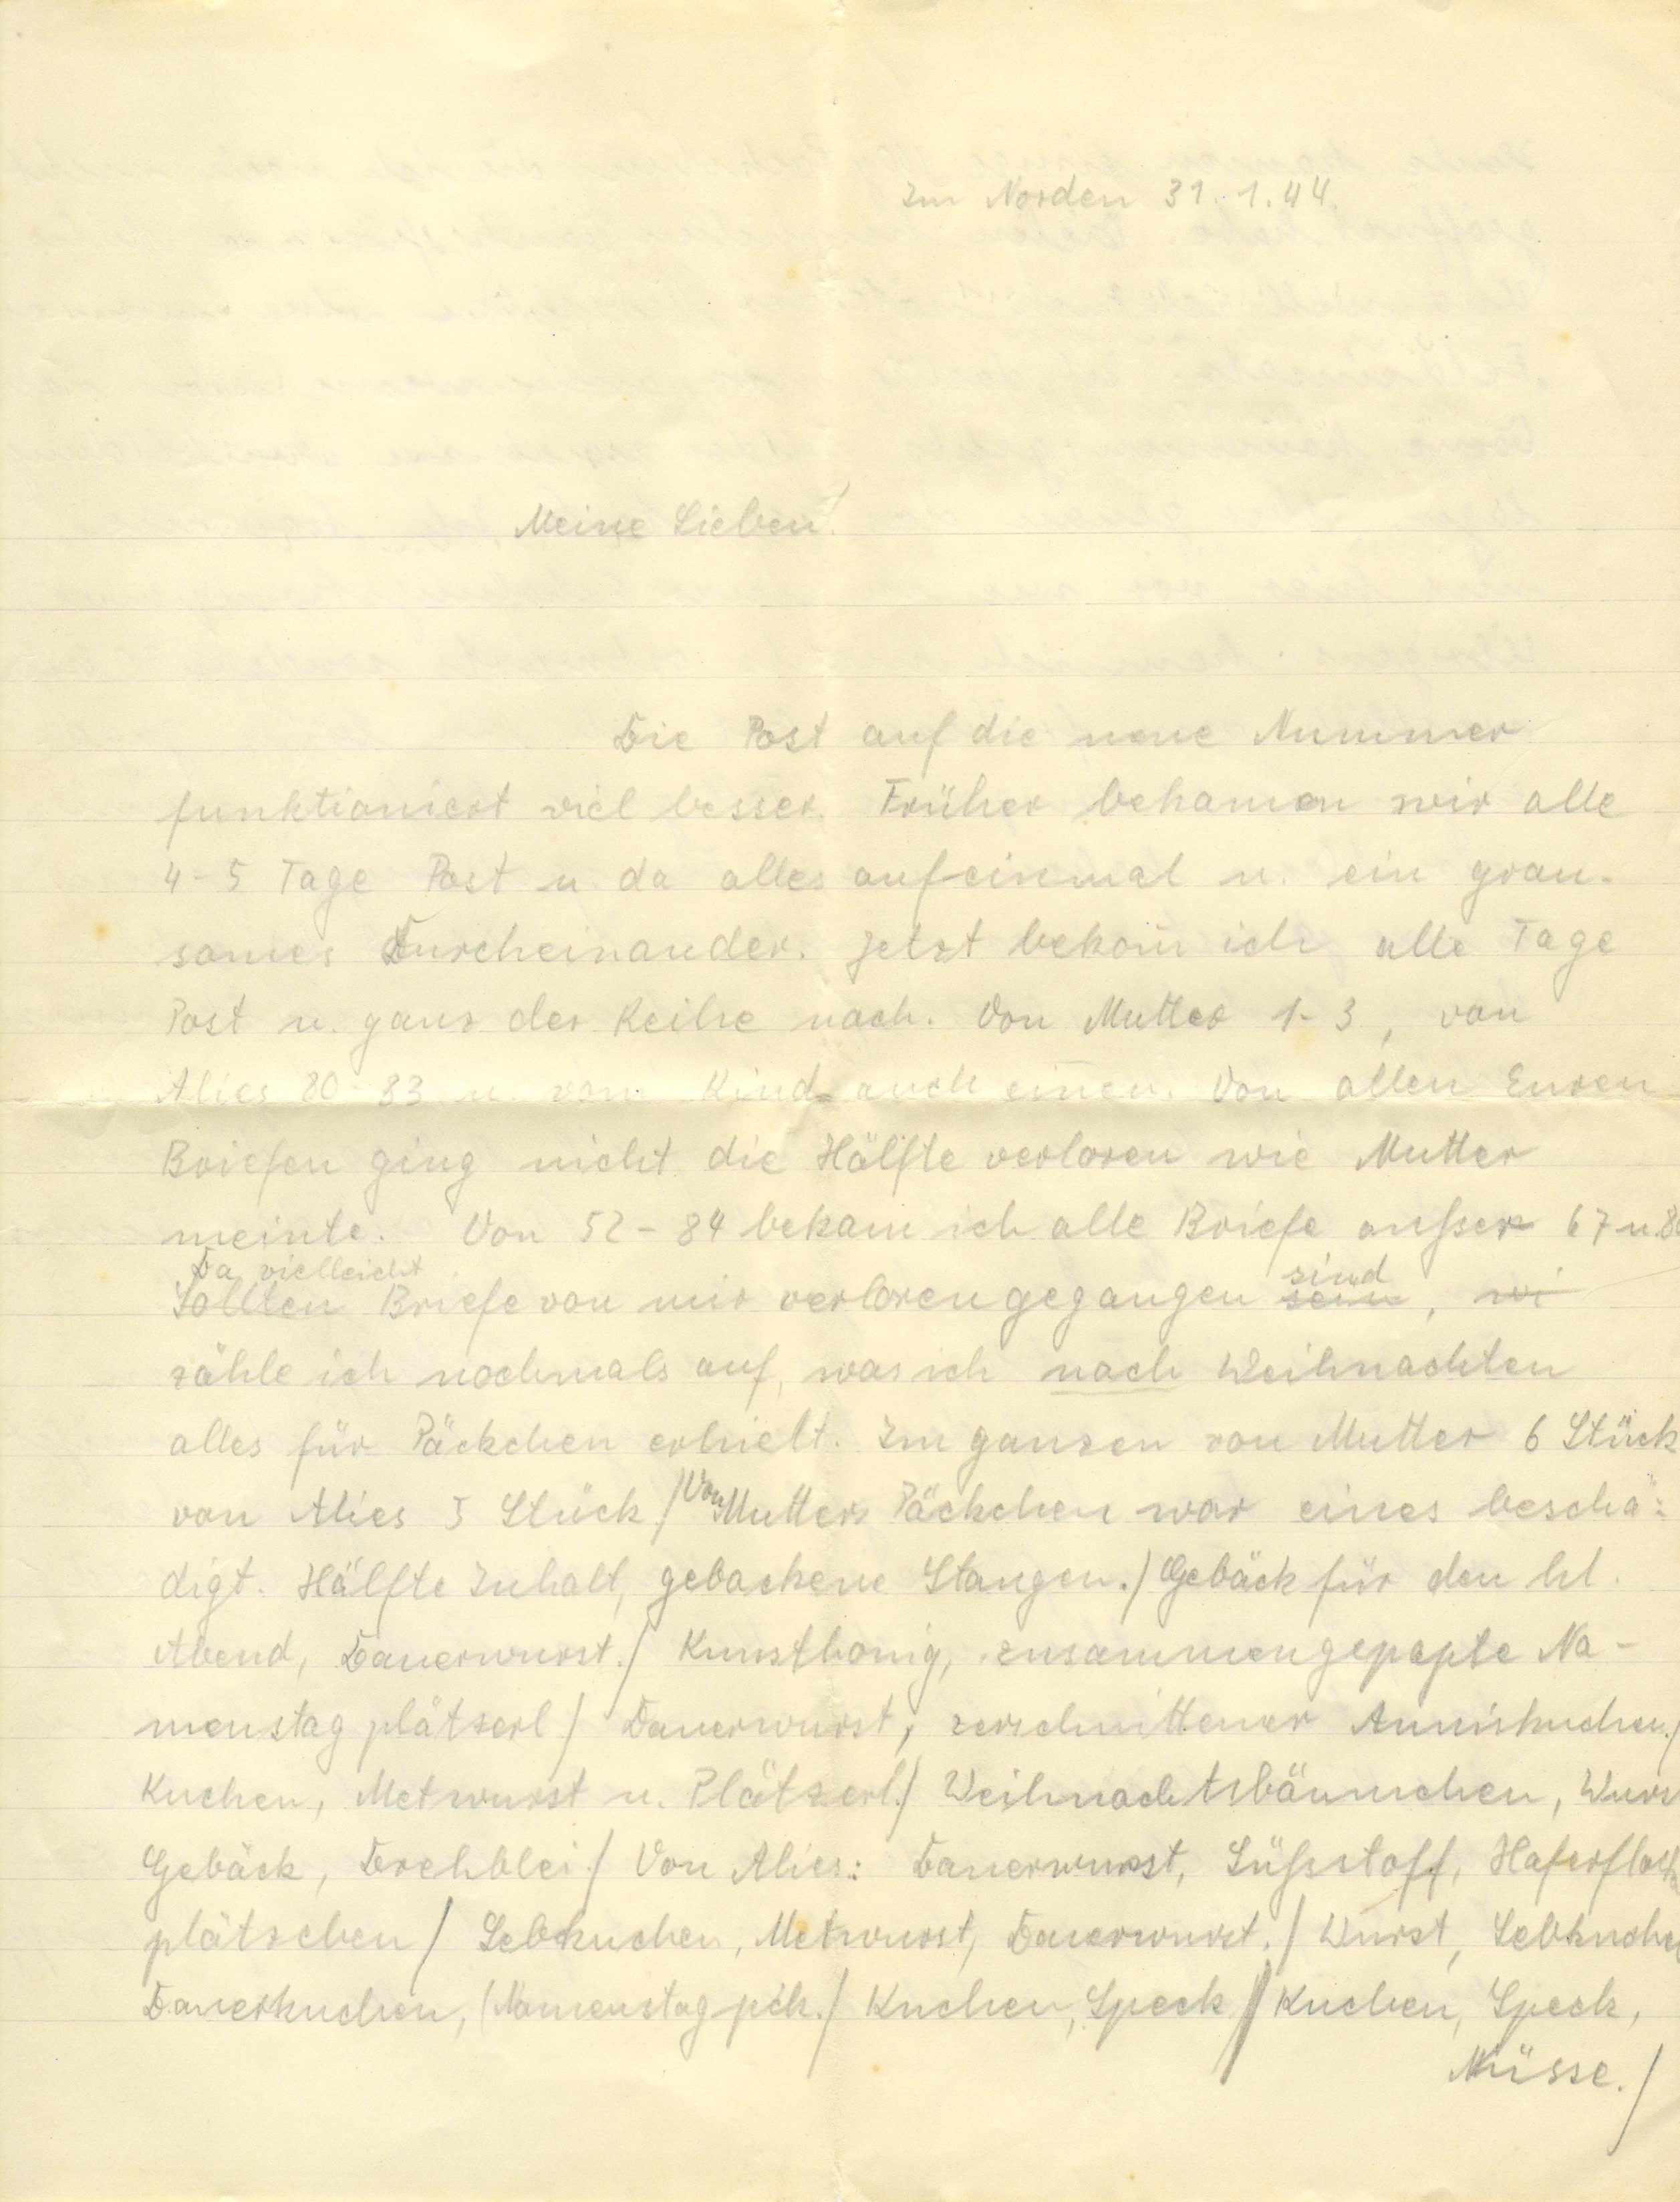 Im Norden 31.1.44.
Meine Lieben!
Die Post auf die neue Nummer
funktioniert viel besser. Früher bekamen wir alle
4-5 Tage Post u. da alles aufeinmal u. ein grau-
sames Durcheinander. Jetzt bekom̄ ich alle Tage
Post u. ganz der Reihe nach. Von Mutter 1-3, von
Alies 80-83 u. vom Kind auch einen. Von allen Euren
Briefen ging nicht die Hälfte verloren wie Mutter
meinte. Von 52-84 bekam ich alle Briefe ausser 67 u.
Da vielleicht
Sollten Briefe von mir verloren gegangen sein sind, wi
zähle ich nochmals auf, was ich nach Weihnachten
alles für Päckchen erhielt. Im ganzen von Mutter 6 Stück
von Alies 5 Stück./ Von Mutters Päckchen war eines beschä=
digt. Hälfte Inhalt, gebackene Stangen./ Gebäck für den hl.
Abend, Dauerwurst./ Kunsthonig, zusammengepapte Na-
menstagplätzerl/ Dauerwurst, zerschnittener Anniskuchen./
Kuchen, Metwurst u. Plätzerl./ Weihnachtsbäumchen, Wurst
Gebäck, Drehblei./ Von Alies: Dauerwurst, Süßstoff, Haferflocken
plätzchen/ Lebkuchen, Metwurst, Dauerwurst./ Wurst, Lebkuchen
Dauerkuchen, (Namenstagpck./ Kuchen, Speck/ Kuchen, Speck,
Nüsse./